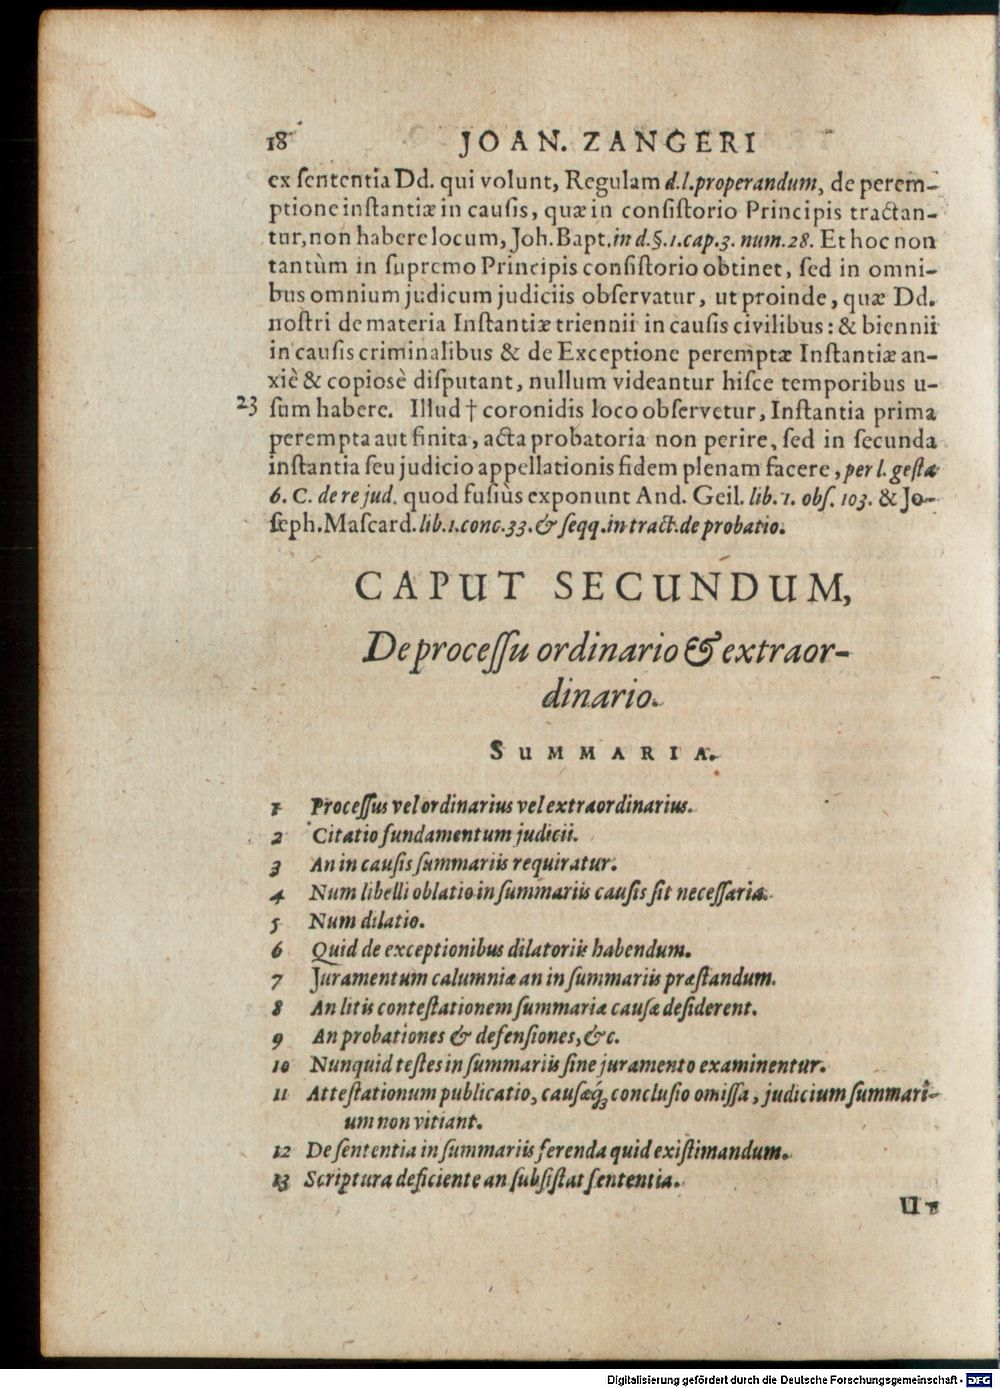 18 JOAN. ZANGERI
ex ſententia Dd. qui volunt, Regulam d.l.properandum, de perem-
ptione inſtantiæ in cauſis, quæ in conſiſtorio Principis tractan-
tur, non habere locum, Joh. Bapt. in d.§.1.cap.3. num.28. Et hoc non
tantùm in ſupremo Principis conſiſtorio obtinet, ſed in omni-
bus omnium judicum judiciis obſervatur, ut proinde, quæ Dd.
noſtri de materia Inſtantiæ triennii in cauſis civilibus: & biennii
in cauſis criminalibus & de Exceptione peremptæ Inſtantiæ an-
xiè & copiosè diſputant, nullum videantur hiſce temporibus u-
23 ſum habere. Illud † coronidis loco obſervetur, Inſtantia prima
perempta aut finita, acta probatoria non perire, ſed in ſecunda
inſtantia ſeu judicio appellationis fidem plenam facere, per l. geſtæ
6. C. de re jud. quod fuſiùs exponunt And. Geil. lib. 1. obſ. 103. & Jo-
ſeph. Maſcard. lib.1.conc.33. & ſeqq. in tract. de probatio.
CAPUT SECUNDUM,
De proceſſu ordinario & extraor-
dinario.
SUMMARIA.
1 Proceſſus vel ordinarius vel extraordinarius.
2 Citatio fundamentum judicii.
3 An in cauſis ſummariis requiratur.
4 Num libelli oblatio in ſummariis cauſis ſit neceſſaria.
5 Num dilatio.
6 Quid de exceptionibus dilatoriis habendum.
7 Juramentum calumniæ an in ſummariis præſtandum.
8 An litis conteſtationem ſummariæ cauſæ deſiderent.
9 An probationes & defenſiones, &c.
10 Nunquid teſtes in ſummariis ſine juramento examinentur.
11 Atteſtationum publicatio, cauſæq́ꝫ concluſio omiſſa, judicium ſummari-
um non vitiant.
12 De ſententia in ſummariis ferenda quid exiſtimandum.
13 Scriptura deficiente an ſubſiſtat ſententia.
Digitalisierung gefördert durch die Deutsche Forschungsgemeinschaft - DFG